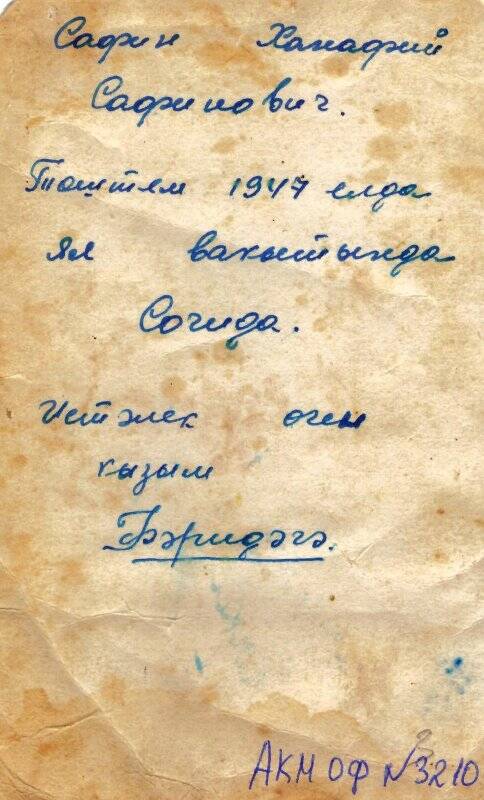 Сафин Ханафий
Сафинович.
Тоштем 1947 елда
ял вакытында
Сочида.
Истэлек очен
кызым
Фэридэгэ.
АКМ ОФ №3210